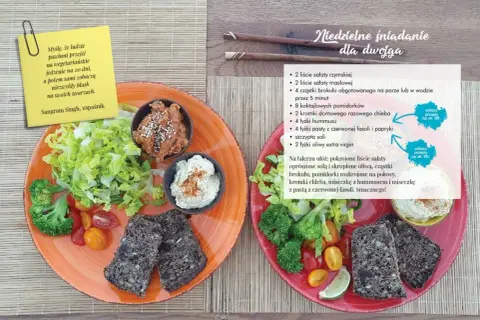 Myślę, że ludzie
powinni przejść
na wegetariańskie
jedzenie na 10 dni,
a potem sami zobaczą
niezwykły blask
na swoich twarzach.
Sangram Singh, zapaśnik
Niedzielne śniadanie
dla dwojga
• 2 liście sałaty rzymskiej
• 2 liście sałaty masłowej
• 4 cząstki brokułu obgotowanego na parze lub w wodzie
przez 5 minut
• 8 koktajlowych pomidorków
• 2 kromki domowego razowego chleba
• 4 łyżki hummusu
• 4 łyżki pasty z czerwonej fasoli i papryki
• szczypta soli
• 2 łyżki oliwy extra virgin
Na talerzu ułóż: pokrojone liście sałaty
oprószone solą i skropione oliwą, cząstki
brokułu, pomidorki rozkrojone na połowy,
kromki chleba, miseczkę z hummusem i miseczkę
z pastą z czerwonej fasoli. Smacznego!
zobacz
przepis
na str.
zobacz
przepis
na str.